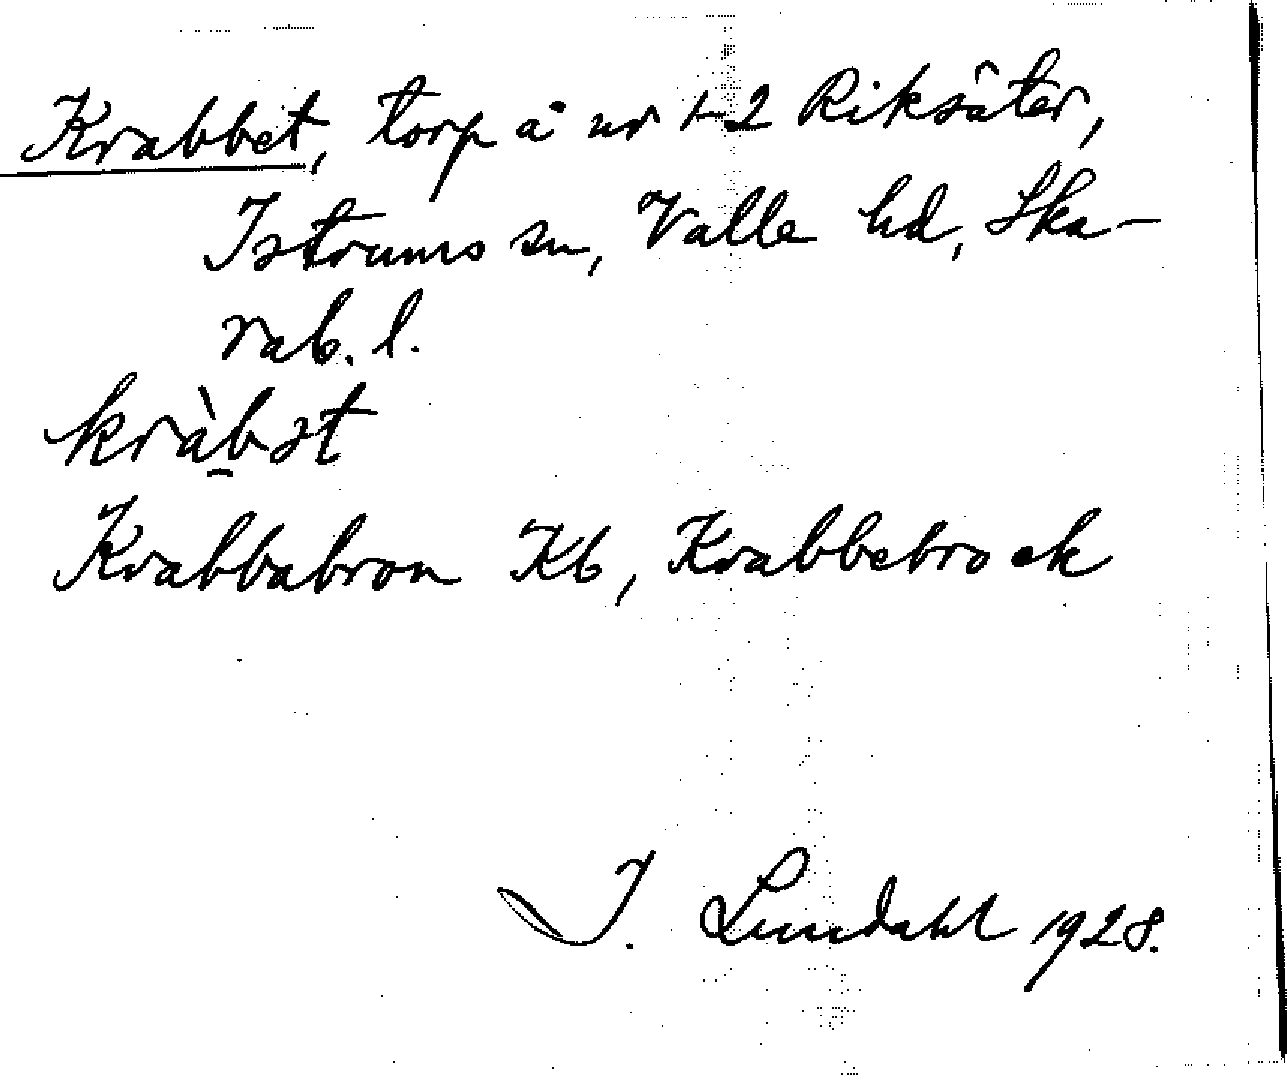 Krabbet, torp å nr 1-2 Riksäter,
Istrums sn, Valle hd, Ska-
rab. l.
kràb̠ət
Krabbabron Kb, Krabbebro ek
I. Lundahl 1928.